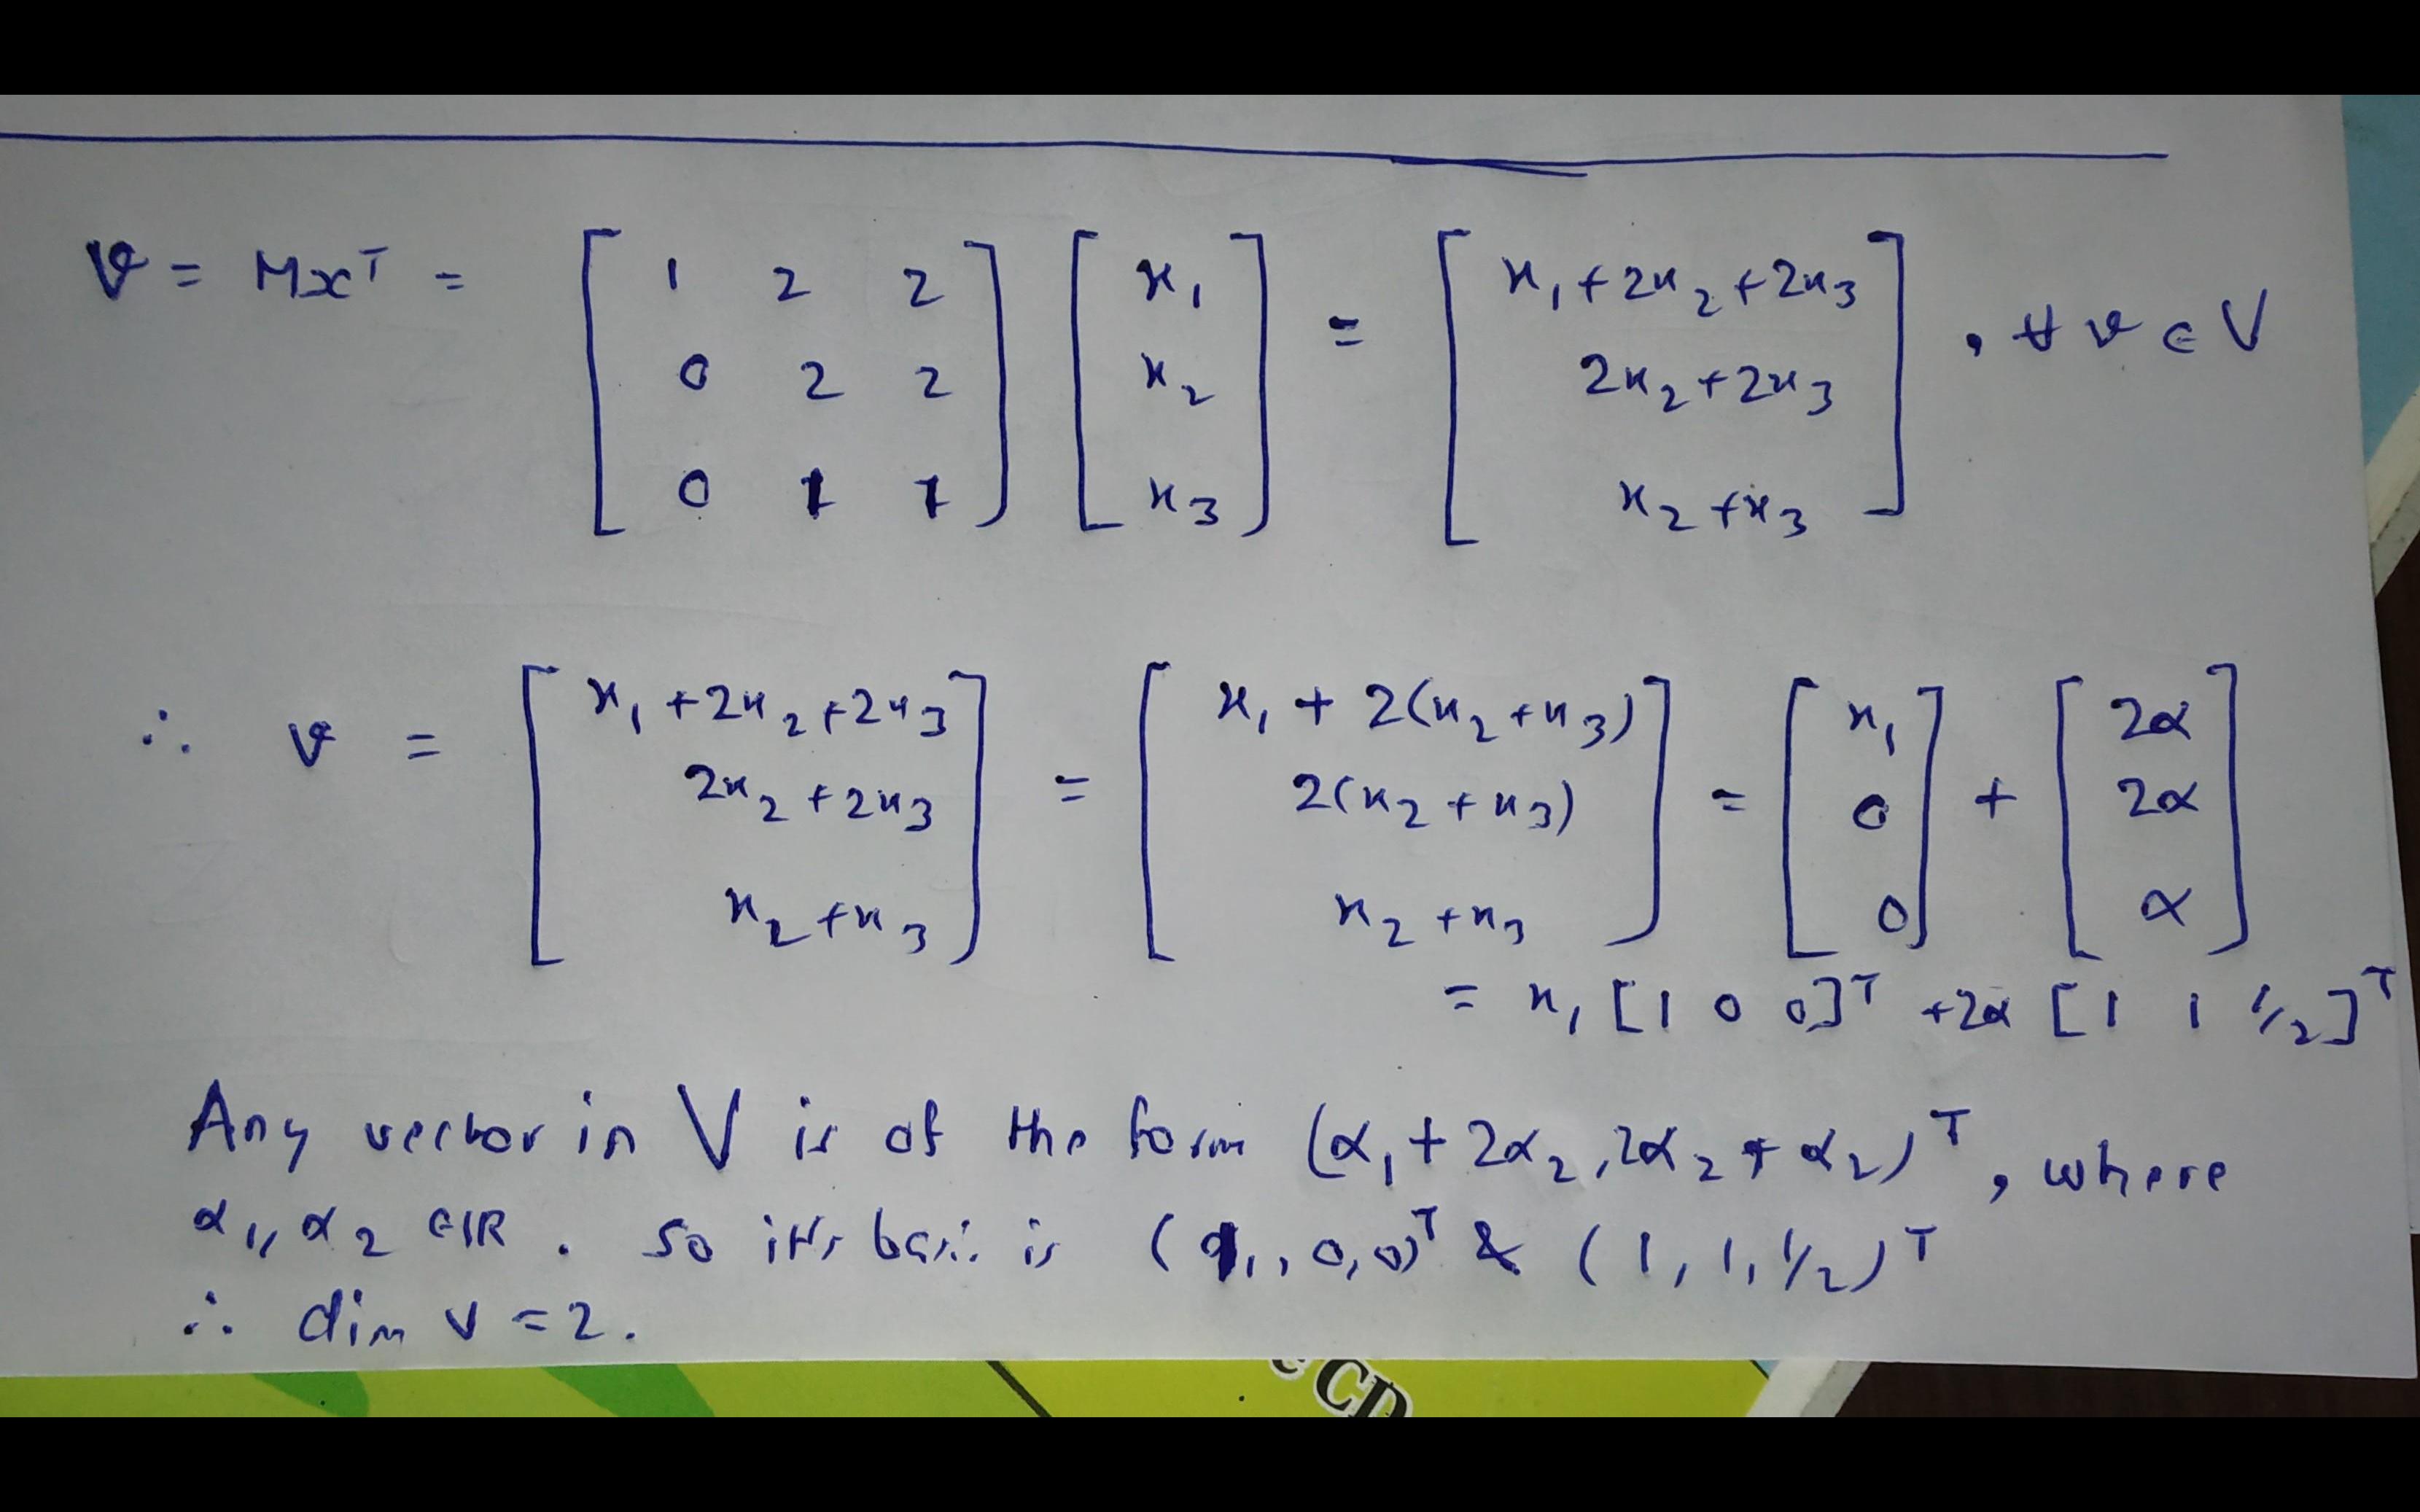 v = Mxᵀ = [1 2 2; 0 2 2; 0 1 1] [x₁; x₂; x₃] = [x₁+2x₂+2x₃; 2x₂+2x₃; x₂+x₃], ∀ v ∈ V
∴ v = [x₁+2x₂+2x₃; 2x₂+2x₃; x₂+x₃] = [x₁+2(x₂+x₃); 2(x₂+x₃); x₂+x₃] = [x₁; 0; 0] + [2α; 2α; α]
= x₁ [1 0 0]ᵀ +2α [1 1 1/2]ᵀ
Any vector in V is of the form (α₁+2α₂, 2α₂+α₂)ᵀ, where
α₁, α₂ ∈ ℝ. So its basis is (1, 0, 0)ᵀ & (1, 1, 1/2)ᵀ
∴ dim V = 2.
e CD